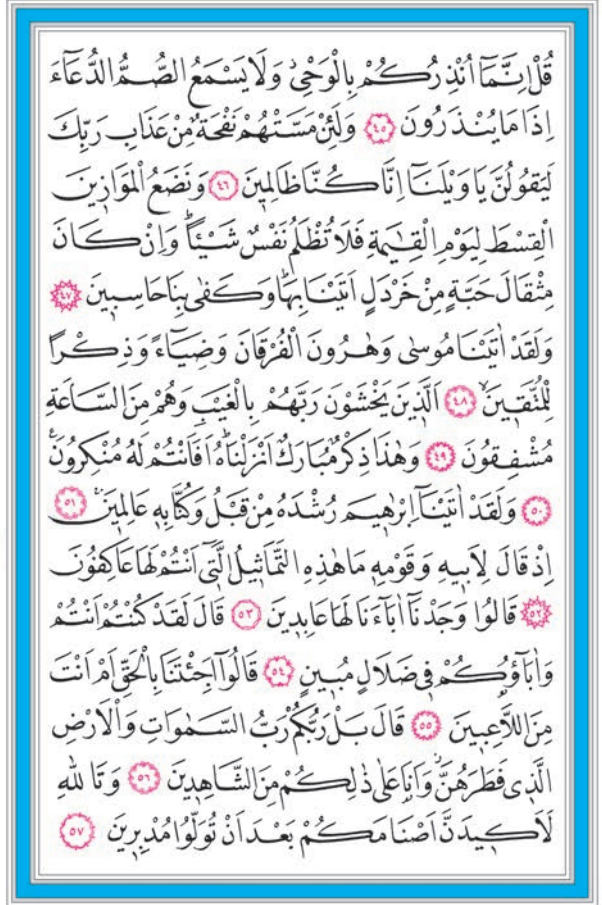 قُلْ اِنَّمَٓا اُنْذِرُكُمْ بِالْوَحْيِۘ وَلَا يَسْمَعُ الصُّمُّ الدُّعَٓاءَ
اِذَا مَا يُنْذَرُونَ ﴿٤٥﴾ وَلَئِنْ مَسَّتْهُمْ نَفْحَةٌ مِنْ عَذَابِ رَبِّكَ
لَيَقُولُنَّ يَا وَيْلَنَٓا اِنَّا كُنَّا ظَالِمٖينَ ﴿٤٦﴾ وَنَضَعُ الْمَوَازٖينَ
الْقِسْطَ لِيَوْمِ الْقِيٰمَةِ فَلَا تُظْلَمُ نَفْسٌ شَيْـًٔاؕ وَاِنْ كَانَ
مِثْقَالَ حَبَّةٍ مِنْ خَرْدَلٍ اَتَيْنَا بِهَاؕ وَكَفٰى بِنَا حَاسِبٖينَ ﴿٤٧﴾
وَلَقَدْ اٰتَيْنَا مُوسٰى وَهٰرُونَ الْفُرْقَانَ وَضِيَٓاءً وَذِكْرًا
لِلْمُتَّقٖينَۙ ﴿٤٨﴾ اَلَّذٖينَ يَخْشَوْنَ رَبَّهُمْ بِالْغَيْبِ وَهُمْ مِنَ السَّاعَةِ
مُشْفِقُونَ ﴿٤٩﴾ وَهٰذَا ذِكْرٌ مُبَارَكٌ اَنْزَلْنَاهُؕ اَفَاَنْتُمْ لَهُ مُنْكِرُونَ۟
﴿٥٠﴾ وَلَقَدْ اٰتَيْنَٓا اِبْرٰهٖيمَ رُشْدَهُ مِنْ قَبْلُ وَكُنَّا بِهٖ عَالِمٖينَۚ ﴿٥١﴾
اِذْ قَالَ لِاَبٖيهِ وَقَوْمِهٖ مَا هٰذِهِ التَّمَاثٖيلُ الَّتٖٓي اَنْتُمْ لَهَا عَاكِفُونَ
﴿٥٢﴾ قَالُوا وَجَدْنَٓا اٰبَٓاءَنَا لَهَا عَابِدٖينَ ﴿٥٣﴾ قَالَ لَقَدْ كُنْتُمْ اَنْتُمْ
وَاٰبَٓاؤُ۬كُمْ فٖي ضَلَالٍ مُبٖينٍ ﴿٥٤﴾ قَالُٓوا اَجِئْتَنَا بِالْحَقِّ اَمْ اَنْتَ
مِنَ اللَّاعِبٖينَ ﴿٥٥﴾ قَالَ بَلْ رَبُّكُمْ رَبُّ السَّمٰوَاتِ وَالْاَرْضِ
الَّذٖي فَطَرَهُنَّؗ وَاَنَا۬ عَلٰى ذٰلِكُمْ مِنَ الشَّاهِدٖينَ ﴿٥٦﴾ وَتَاللّٰهِ
لَاَكٖيدَنَّ اَصْنَامَكُمْ بَعْدَ اَنْ تُوَلُّوا مُدْبِرٖينَ ﴿٥٧﴾